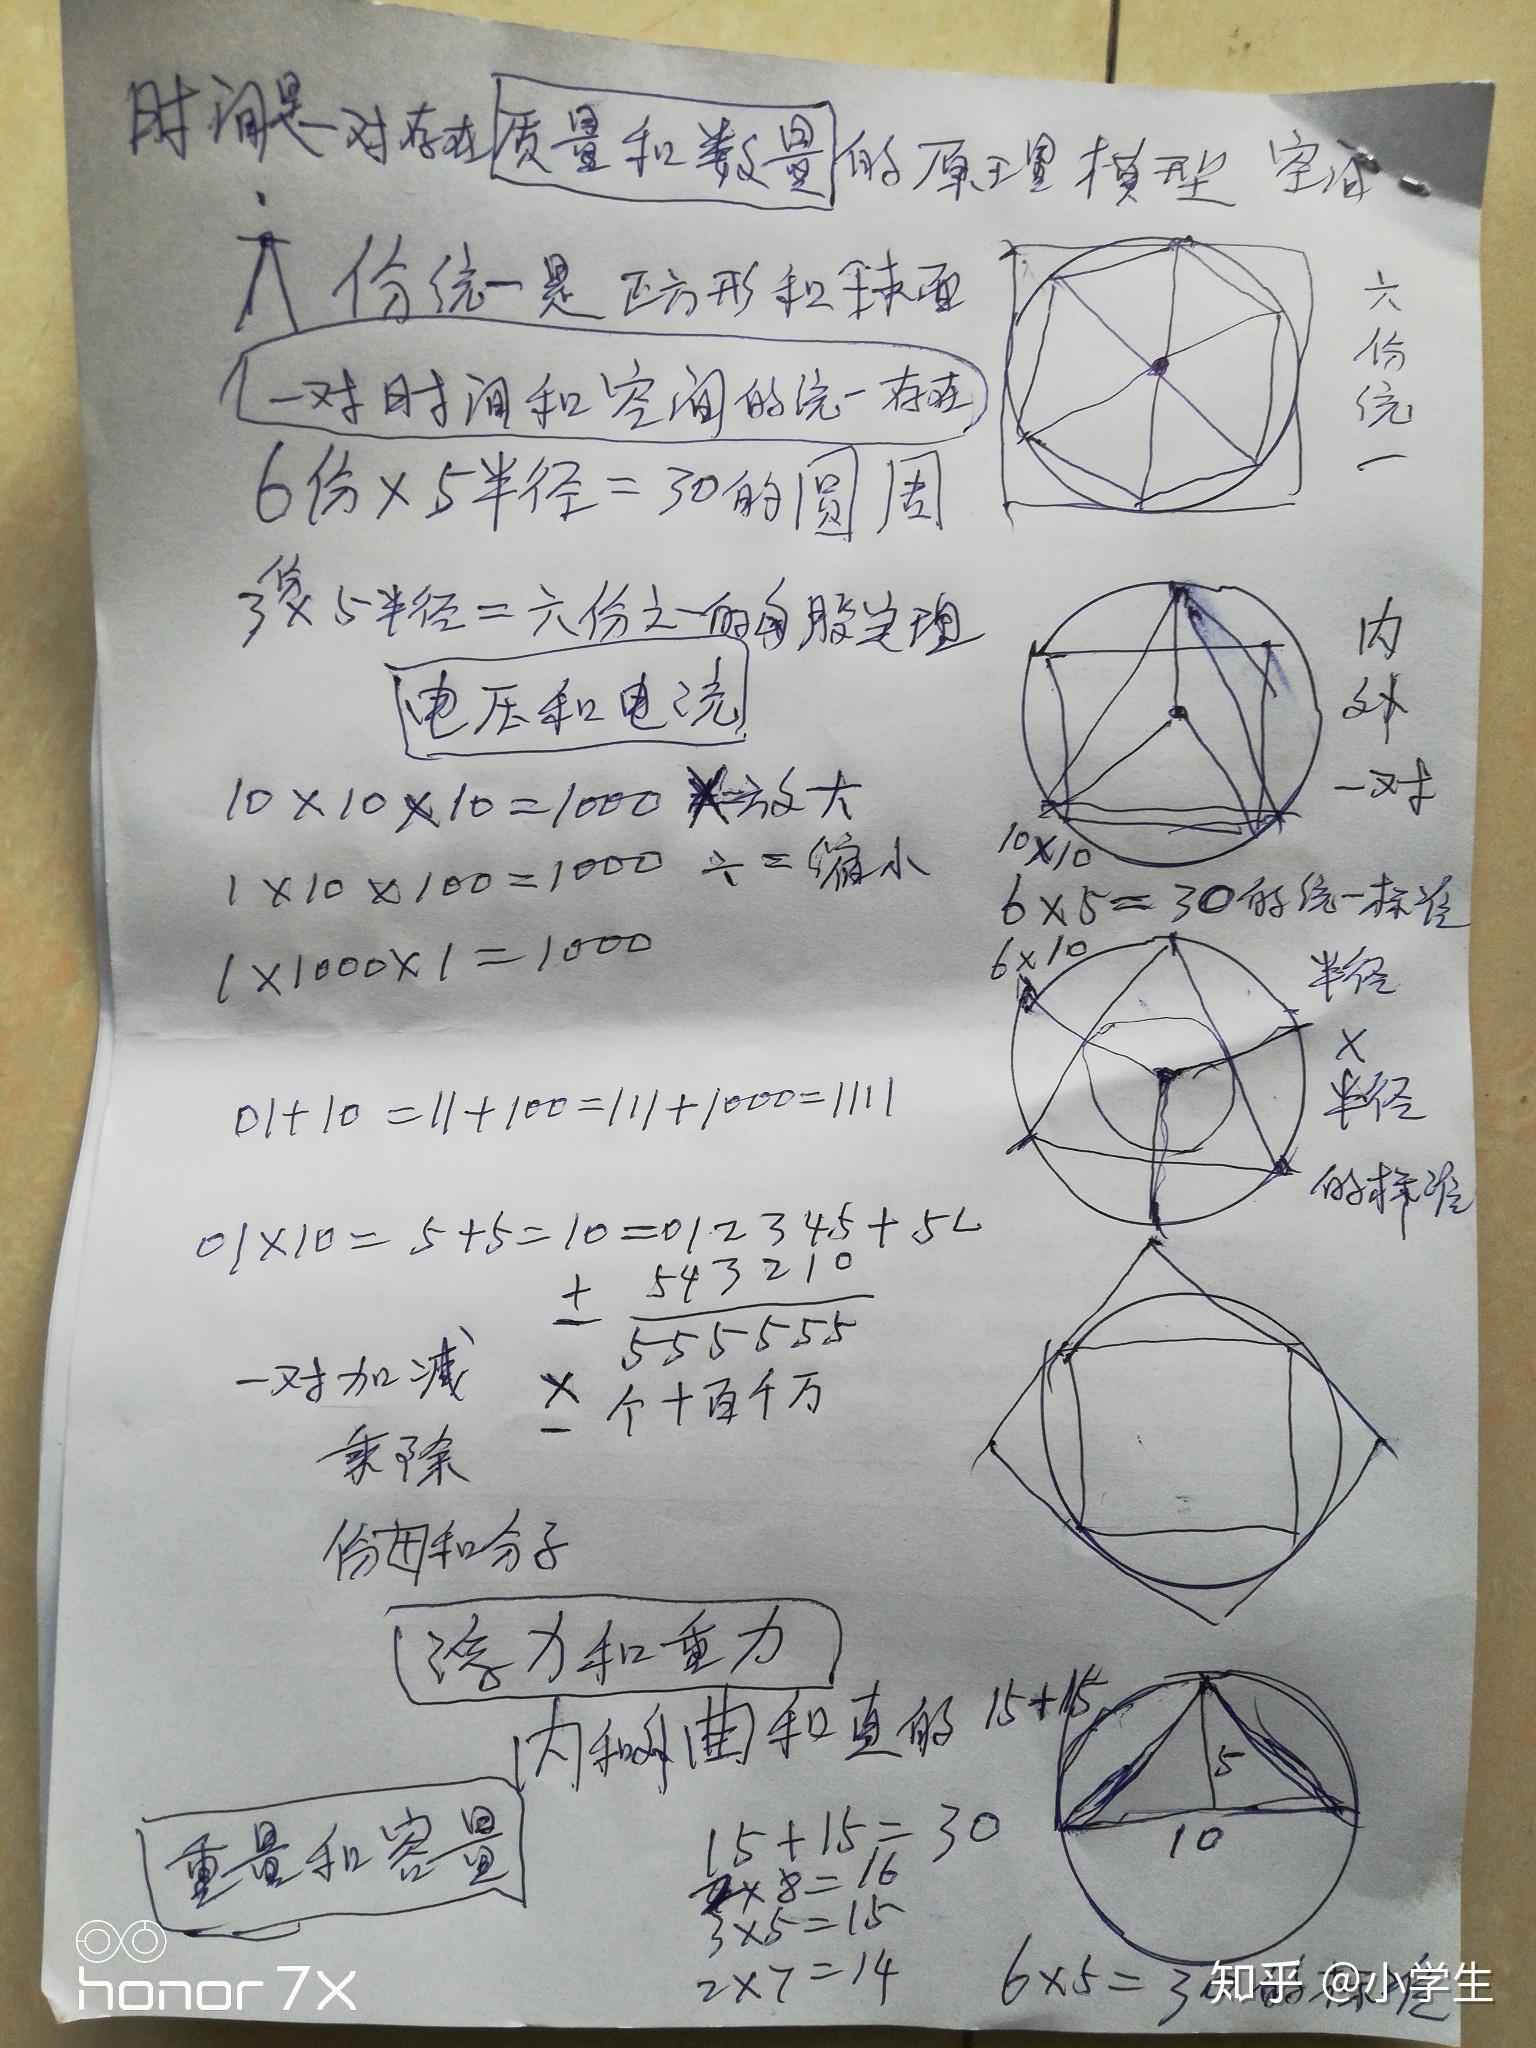 时间是一对存在质量和数量的原理模型 空间
六份统一是正方形和球面
六份统一
一对时间和空间的统一存在
6份×5半径=30的圆周
3份×5半径=六份之一的勾股定理
内外一对
电压和电流
10×10×10=1000 放大
10×10
1×10×100=1000 六=缩小
6×5=30的统一标准
1×1000×1=1000
6×10
半径×半径的标准
01+10=11+100=111+1000=1111
01×10=5+5=10=012345+5
+ 543210
555555
一对加减
× 个十百千万
乘除
份母和分子
浮力和重力
内和外曲和直的15+15
5
10
重量和容量
15+15=30
2×8=16
3×5=15
2×7=14
6×5=30的标准
honor 7X
知乎 @小学生